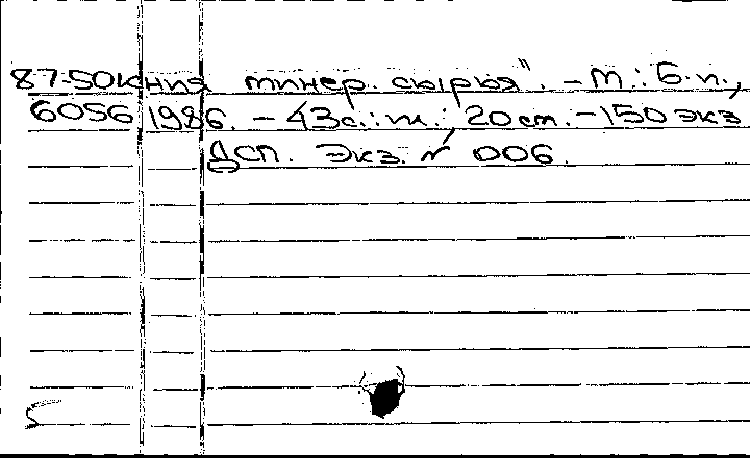 87-50кния минер. сырья". - М.: Б.и.,
6056 1986. - 43с.: ил.; 20 см. - 150 экз
ДСП. Экз. № 006.